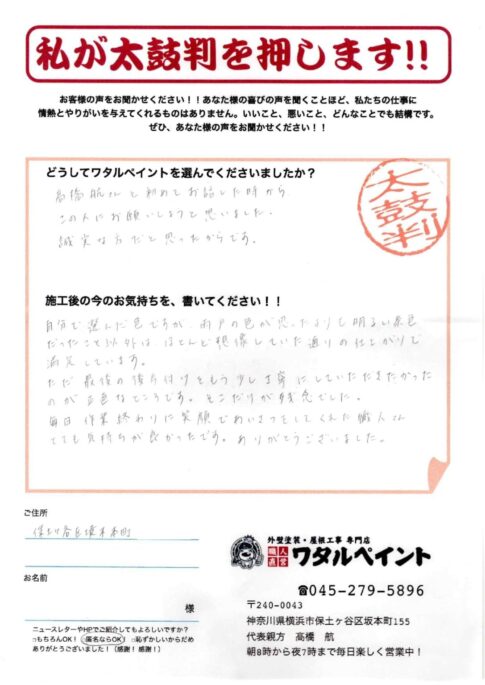 私が太鼓判を押します!!
お客様の声をお聞かせください！！あなた様の喜びの声を聞くことほど、私たちの仕事に
情熱とやりがいを与えてくれるものはありません。いいこと、悪いこと、どんなことでも結構です。
ぜひ、あなた様の声をお聞かせください！！
どうしてワタルペイントを選んでくださいましたか？
高橋航さんと初めてお話した時から、
この人にお願いしようと思いました。
誠実な方だと思ったからです。
太鼓判
施工後の今のお気持ちを、書いてください！！
自分で選んだ色ですが、雨戸の色が思ったよりも明るい茶色
だったこと以外は、ほとんど想像していた通りの仕上がりで
満足しています。
ただ最後の後片付けをもう少し丁寧にしていただきたかった
のが正直なところです。そこだけが残念でした。
毎日作業終わりに笑顔であいさつをしてくれた職人さん
とても気持ちが良かったです。ありがとうございました。
ご住所
保土ケ谷区坂本町
お名前
様
ニュースレターやHPでご紹介してもよろしいですか？
□もちろんOK！ □匿名ならOK □恥ずかしいからだめ
ありがとうございました！（感謝！感謝！）
外壁塗装・屋根工事 専門店
職人直営 ワタルペイント
☎045-279-5896
〒240-0043
神奈川県横浜市保土ヶ谷区坂本町155
代表親方 高橋 航
朝8から夜7時まで毎日楽しく営業中！